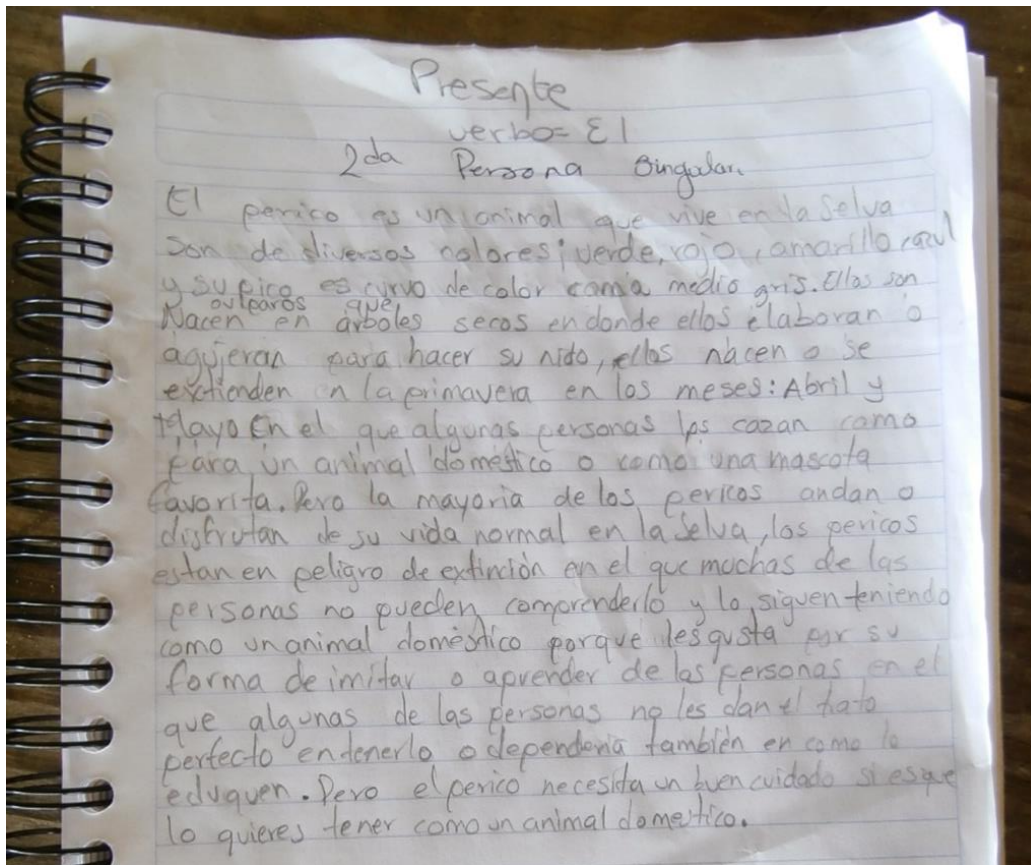 Presente
verbo= El
2da Persona Singular.
El perico es un animal que vive en la Selva
son de diversos colores; verde, rojo, amarillo, azul
y su pico es curvo de color como medio gris. Ellos son
oviparos que
Nacen en árboles secos en donde ellos elaboran o
agujeran para hacer su nido, ellos nacen o se
extienden en la primavera en los meses: Abril y
Mayo En el que algunas personas los cazan como
para un animal doméstico o como una mascota
favorita. Pero la mayoria de los pericos andan o
disfrutan de su vida normal en la Selva, los pericos
estan en peligro de extinción en el que muchas de las
personas no pueden comprenderlo y lo siguen teniendo
como un animal doméstico porque les gusta por su
forma de imitar o aprender de las personas en el
que algunas de las personas no les dan el trato
perfecto en tenerlo o dependeria también en como lo
eduquen. Pero el perico necesita un buen cuidado si es que
lo quieres tener como un animal domestico.